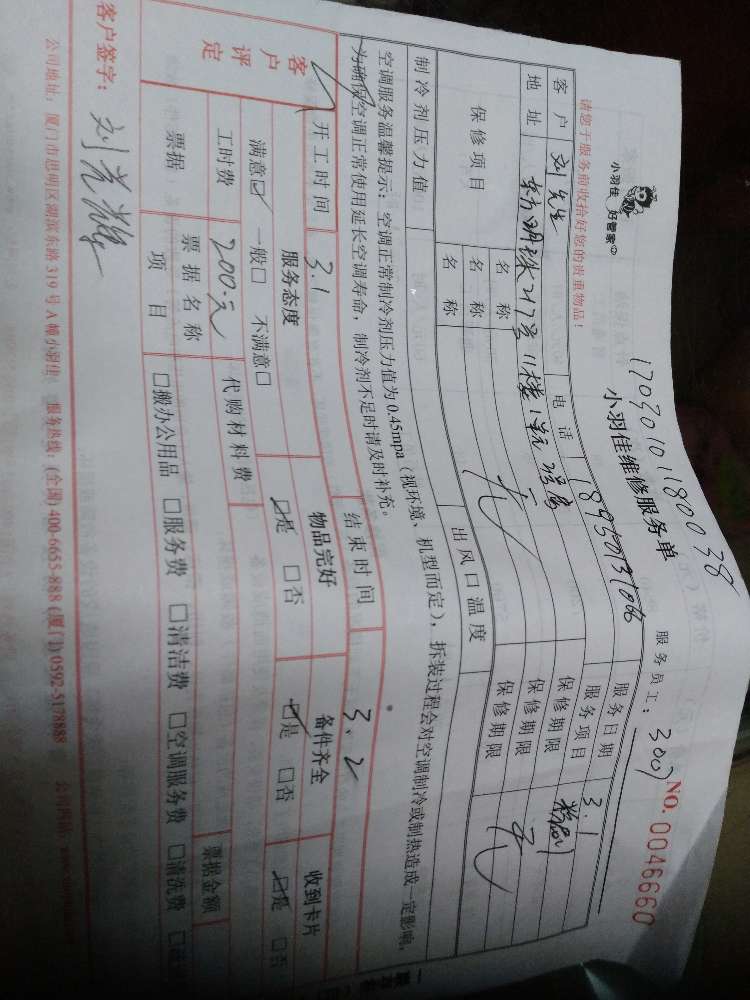 17030101180038
小羽佳 好管家
小羽佳维修服务单
NO. 0046660
请您于服务前收拾好您的贵重物品！
服务员工： 3007
客户 刘先生 电话 服务日期 3.1
地址 东方明珠217号11楼 服务项目
保修项目 名称 保修期限
名称 保修期限
名称 保修期限
制冷剂压力值 出风口温度
空调服务温馨提示：空调正常制冷剂压力值为0.45mpa（视环境、机型而定），拆装过程会对空调制冷或制热造成一定影响，
为确保空调正常使用延长空调寿命，制冷剂不足时请及时补充。
开工时间 3.1 结束时间 3.2
客户评定 服务态度 物品完好 备件齐全 收到卡片
满意☑ 一般□ 不满意□ ☑是 □否 ☑是 □否 ☑是 □否
工时费 200元 代购材料费
票据 票据名称 票据金额
项目 □搬办公用品 □服务费 □清洁费 □空调服务费 □清洗费
客户签字：
公司地址：厦门市思明区湖滨东路319号A幢小羽佳 服务热线：(全国) 400-6655-888 (厦门) 0592-5178888 公司网站：